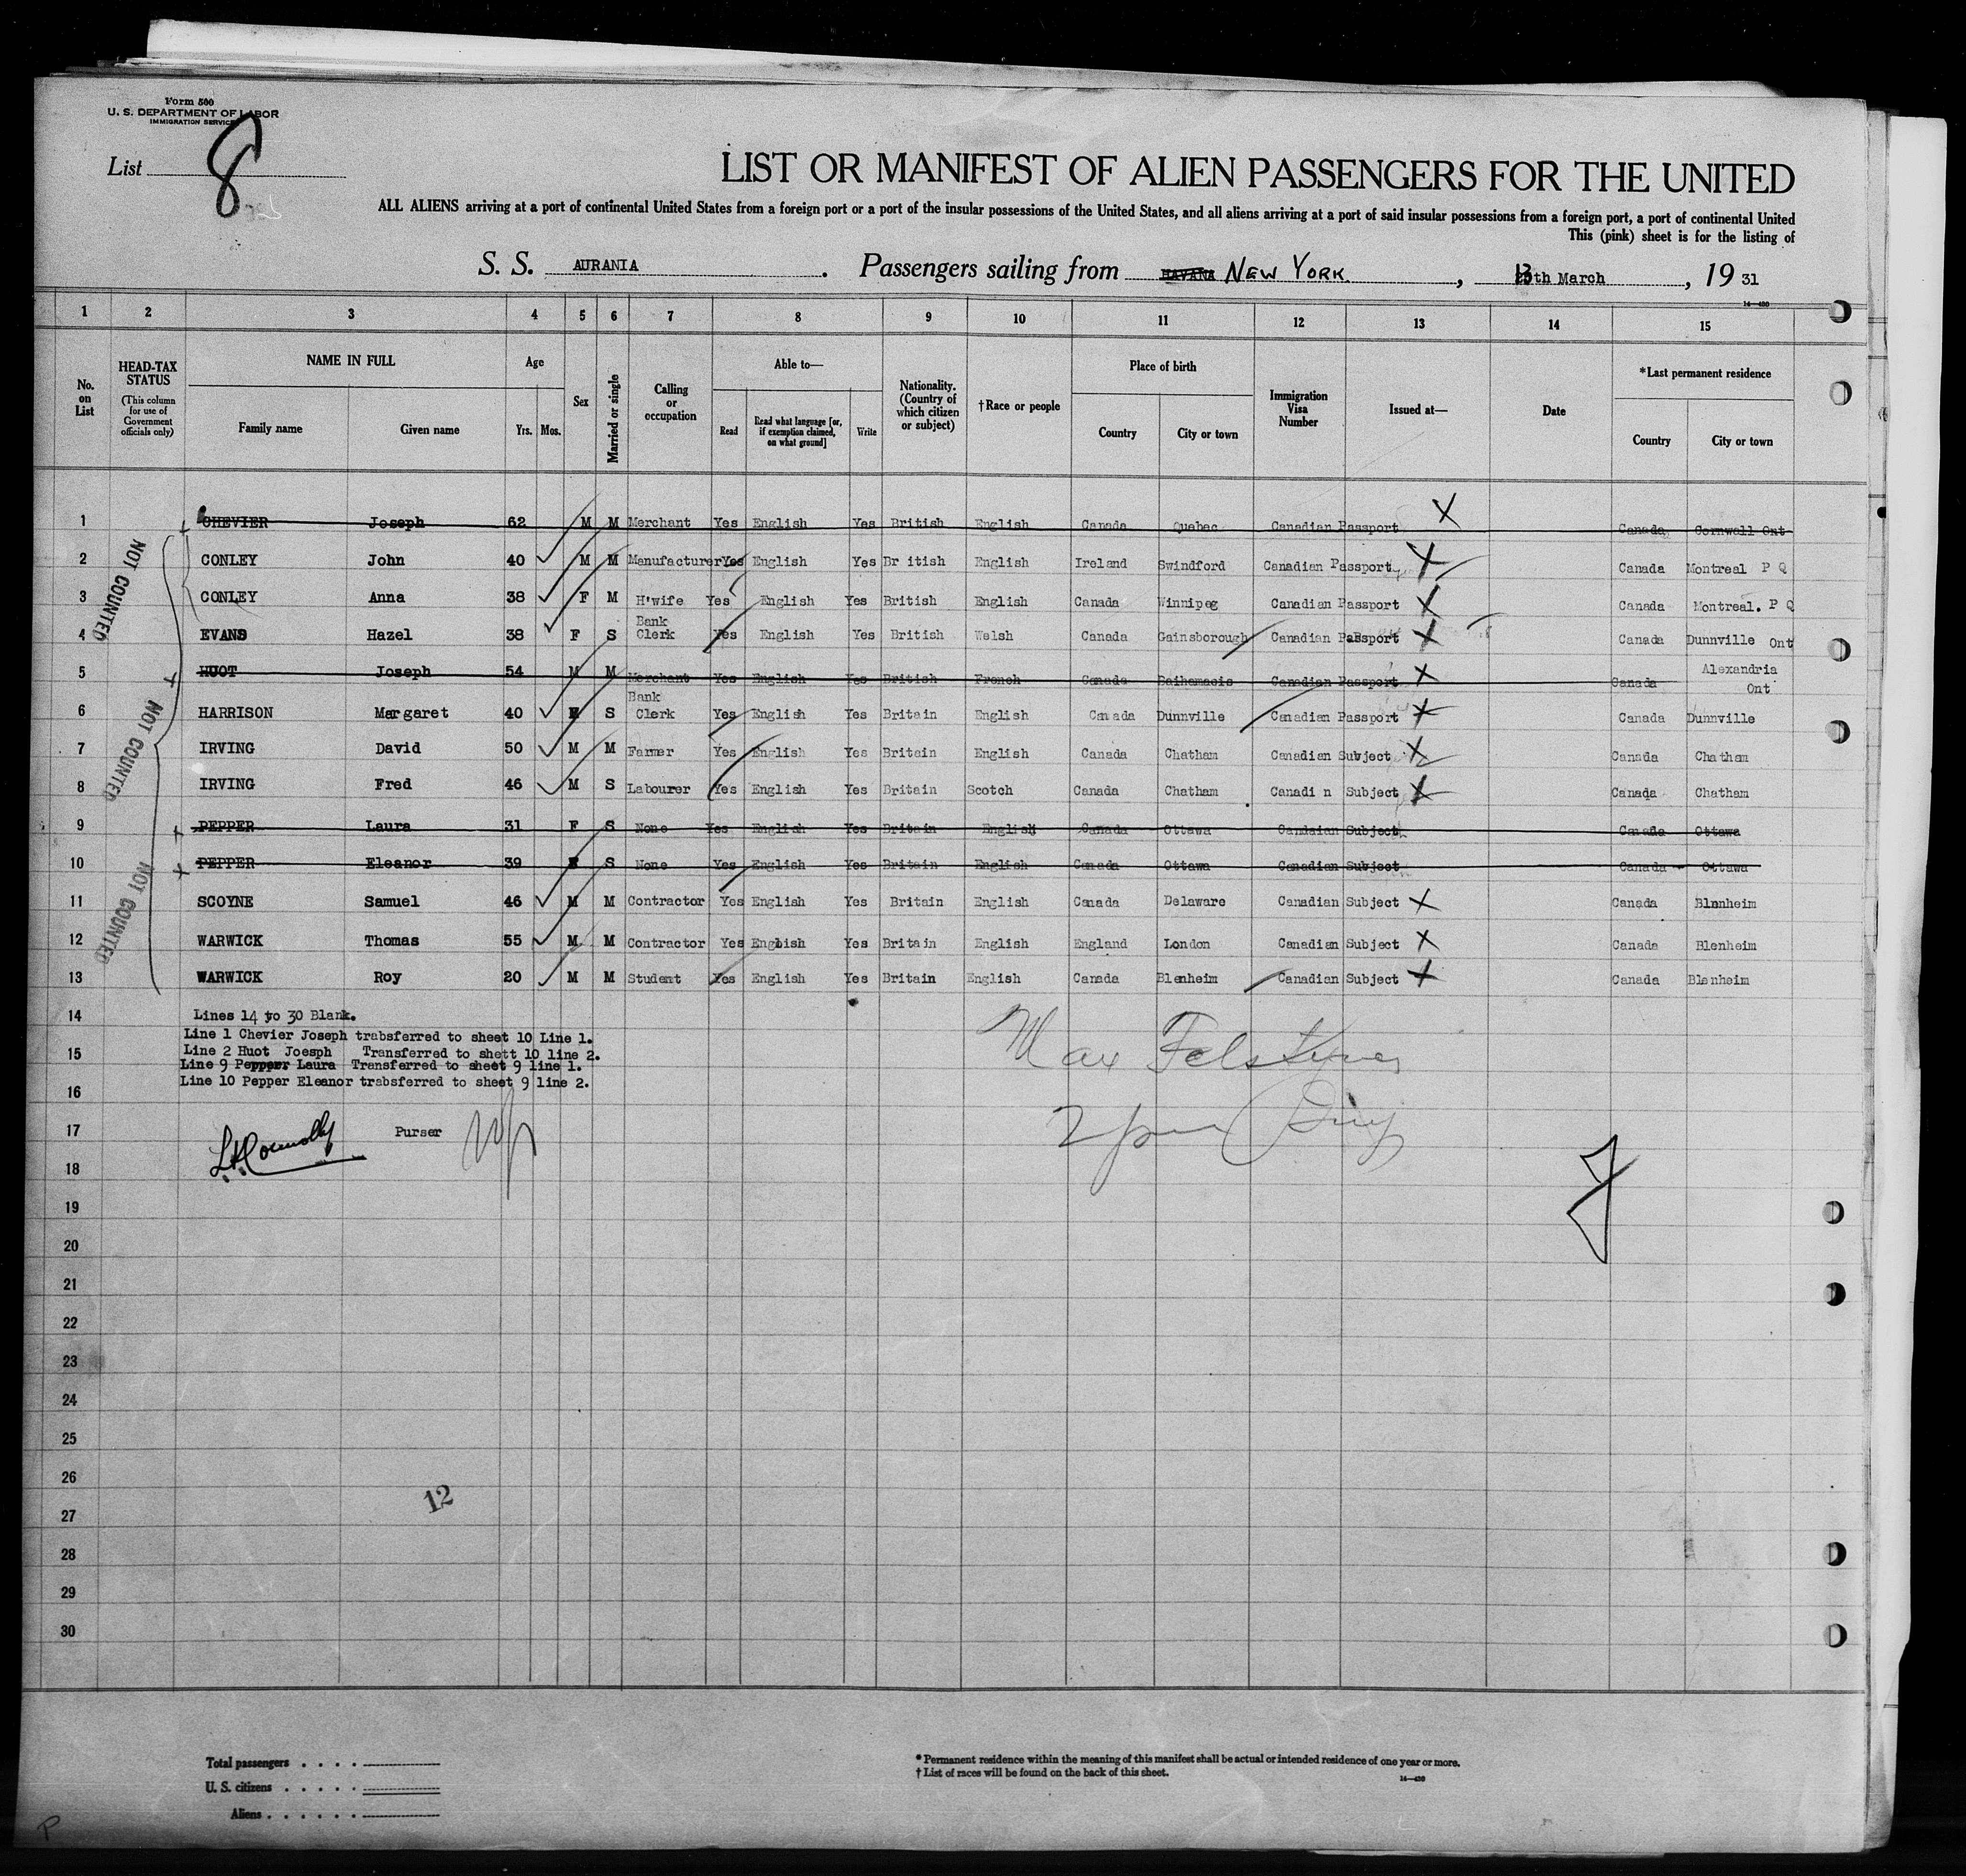 Form 500
U. S. DEPARTMENT OF LABOR
IMMIGRATION SERVICE
List 8
LIST OR MANIFEST OF ALIEN PASSENGERS FOR THE UNITED
ALL ALIENS arriving at a port of continental United States from a foreign port or a port of the insular possessions of the United States, and all aliens arriving at a port of said insular possessions from a foreign port, a port of continental United
This (pink) sheet is for the listing of
S. S. AURANIA. Passengers sailing from HAVANA NEW YORK, 13th March, 19 31
14—430
1 2 3 4 5 6 7 8 9 10 11 12 13 14 15
No. on List HEAD-TAX STATUS (This column for use of Government officials only) NAME IN FULL Family name Given name Age Yrs. Mos. Sex Married or single Calling or occupation Able to— Read Read what language [or, if exemption claimed, on what ground] Write Nationality. (Country of which citizen or subject) †Race or people Place of birth Country City or town Immigration Visa Number Issued at— Date *Last permanent residence Country City or town
1 CHEVIER Joseph 62 M M Merchant Yes English Yes British English Canada Quebec Canadian Passport X Canada Cornwall Ont
2 CONLEY John 40 M M Manufacturer Yes English Yes Br itish English Ireland Swindford Canadian Passport X Canada Montreal P Q
3 CONLEY Anna 38 F M H'wife Yes English Yes British English Canada Winnipeg Canadian Passport X Canada Montreal. P Q
4 EVANS Hazel 38 F S Bank Clerk Yes English Yes British Welsh Canada Gainsborough Canadian Passport X Canada Dunnville Ont
5 HUOT Joseph 54 M M Merchant Yes English Yes British French Canada Canadian Passport X Canada Alexandria Ont
6 HARRISON Margaret 40 S Bank Clerk Yes English Yes Britain English Canada Dunnville Canadian Passport X Canada Dunnville
7 IRVING David 50 M M Farmer Yes English Yes Britain English Canada Chatham Canadian Subject X Canada Chatham
8 IRVING Fred 46 M S Labourer Yes English Yes Britain Scotch Canada Chatham Canadi n Subject X Canada Chatham
9 PEPPER Laura 31 F S None Yes English Yes Britain English Canada Ottawa Canadaian Subject Canada Ottawa
10 PEPPER Eleanor 39 F S None Yes English Yes Britain English Canada Ottawa Canadian Subject Canada Ottawa
11 SCOYNE Samuel 46 M M Contractor Yes English Yes Britain English Canada Delaware Canadian Subject X Canada Blnnheim
12 WARWICK Thomas 55 M M Contractor Yes English Yes Britain English England London Canadian Subject X Canada Blenheim
13 WARWICK Roy 20 M M Student Yes English Yes Britain English Canada Blenheim Canadian Subject X Canada Blenheim
NOT COUNTED
NOT COUNTED
NOT COUNTED
14 Lines 14 to 30 Blank.
Line 1 Chevier Joseph trabsferred to sheet 10 Line 1.
15 Line 2 Huot Joesph Transferred to shett 10 line 2.
Line 9 Pepper Laura Transferred to sheet 9 line 1.
Line 10 Pepper Eleanor trabsferred to sheet 9 line 2.
16
17 Purser
18
19
20
21
22
23
24
25
26
12
27
28
29
30
Total passengers . . . .
U. S. citizens . . . . .
Aliens . . . . . .
* Permanent residence within the meaning of this manifest shall be actual or intended residence of one year or more.
† List of races will be found on the back of this sheet.
14—430
P